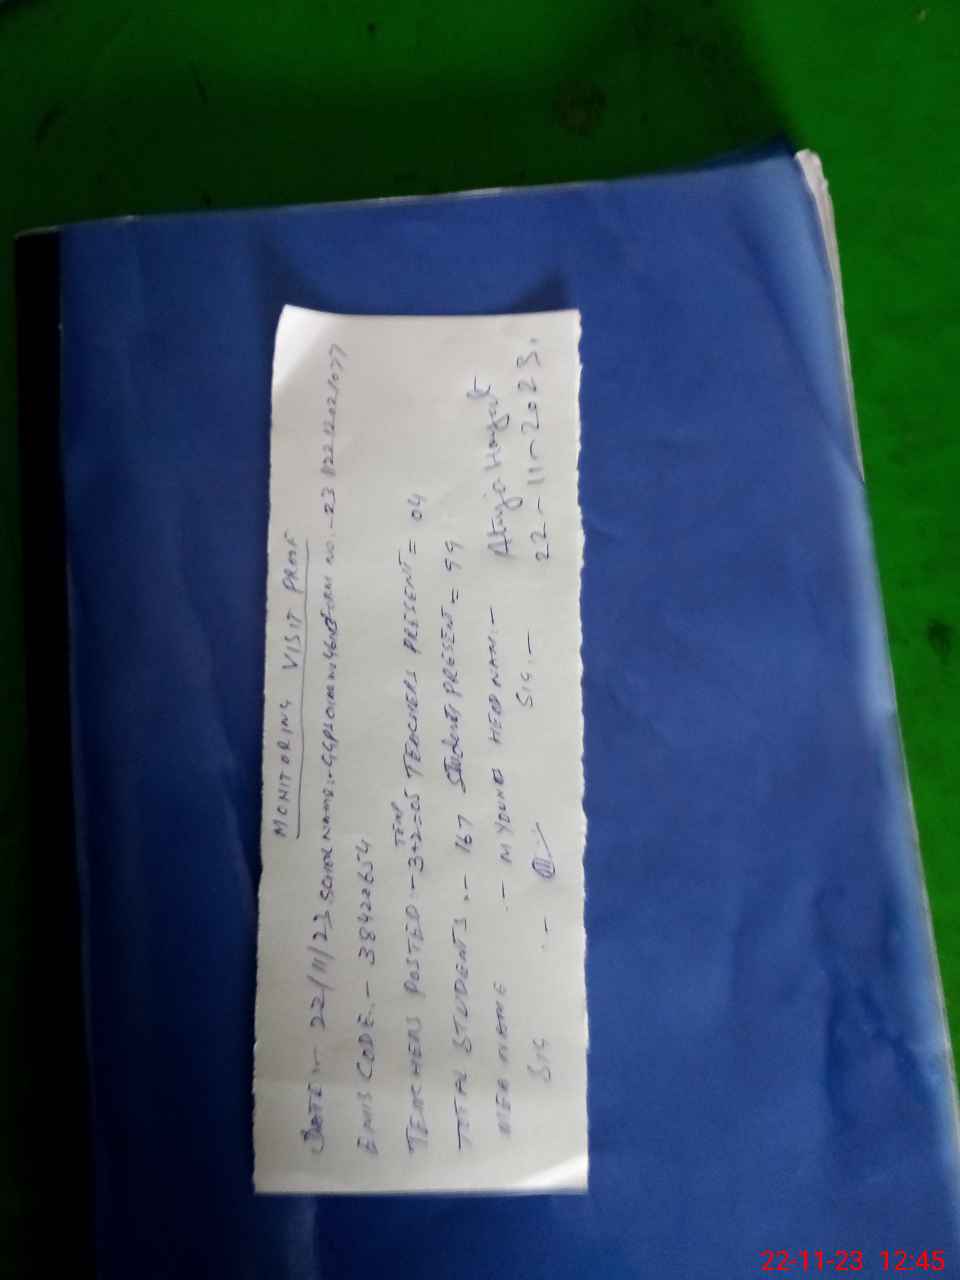 MONITORING VISIT PROOF
DATE :- 22/11/23 SCHOOL NAME:- FORM NO. -
EMIS CODE. - 38422654
TEACHERS POSTED :- 3+2=05 TEACHERS PRESENT = 04
TEMP
TOTAL STUDENTS. - 167 Students PRESENT = 99
MEA NAME - M YOUNAS HEAD NAM. -
SIG - SIG. - 22-11-2023.
22-11-23 12:45